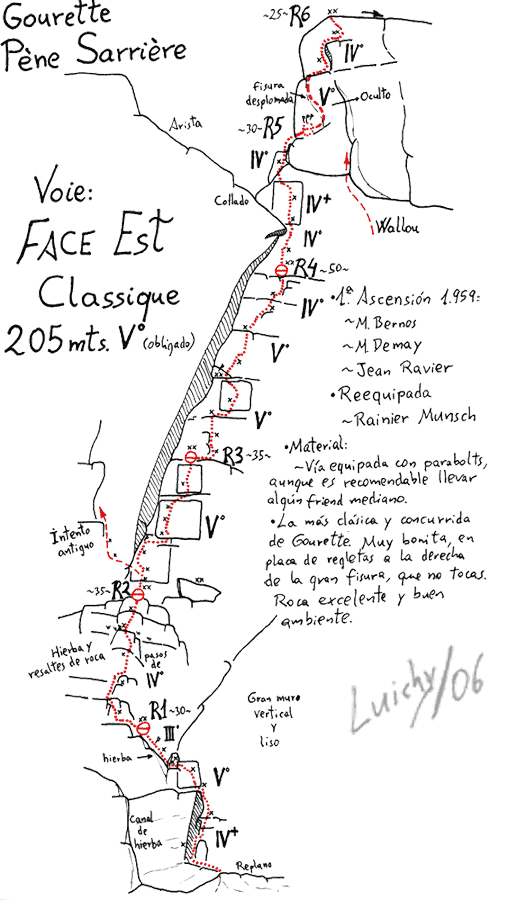 Gourette
Pène Sarrière
~25~ R6
IV°
fisura
desplomada
V°
Oculto
~30~ R5
Arista
IV°
Collado
IV+
Wallou
IV°
Voie:
FACE EST
Classique
205 mts. V° (obligado)
R4 ~50~
IV°
• 1ª Ascensión 1.959:
~M. Bernos
~M. Demay
~Jean Ravier
• Reequipada
~Rainier Munsch
V°
V°
R3 ~35~
• Material:
~Vía equipada con parabolts,
aunque es recomendable llevar
algún friend mediano.
• La más clásica y concurrida
de Gourette. Muy bonita, en
placa de regletas a la derecha
de la gran fisura, que no tocas.
Roca excelente y buen
ambiente.
V°
Intento
antiguo
~35~ R2
Hierba y
resaltes de roca
pasos
de
IV°
R1 ~30~
III°
Gran muro
vertical
y
liso
hierba
V°
Canal
de
hierba
IV+
Replano
Luichy/06